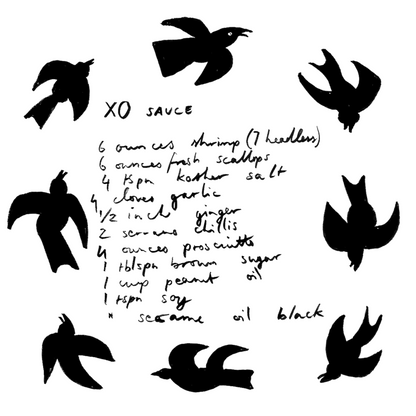 XO SAUCE
6 ounces shrimp (7 headless)
6 ounces fresh scallops
4 tspn kosher salt
4 cloves garlic
1/2 inch ginger
2 serrano chillis
4 ounces prosciutto
1 tblspn brown sugar
1 cup peanut oil
1 tspn soy
" sesame oil black